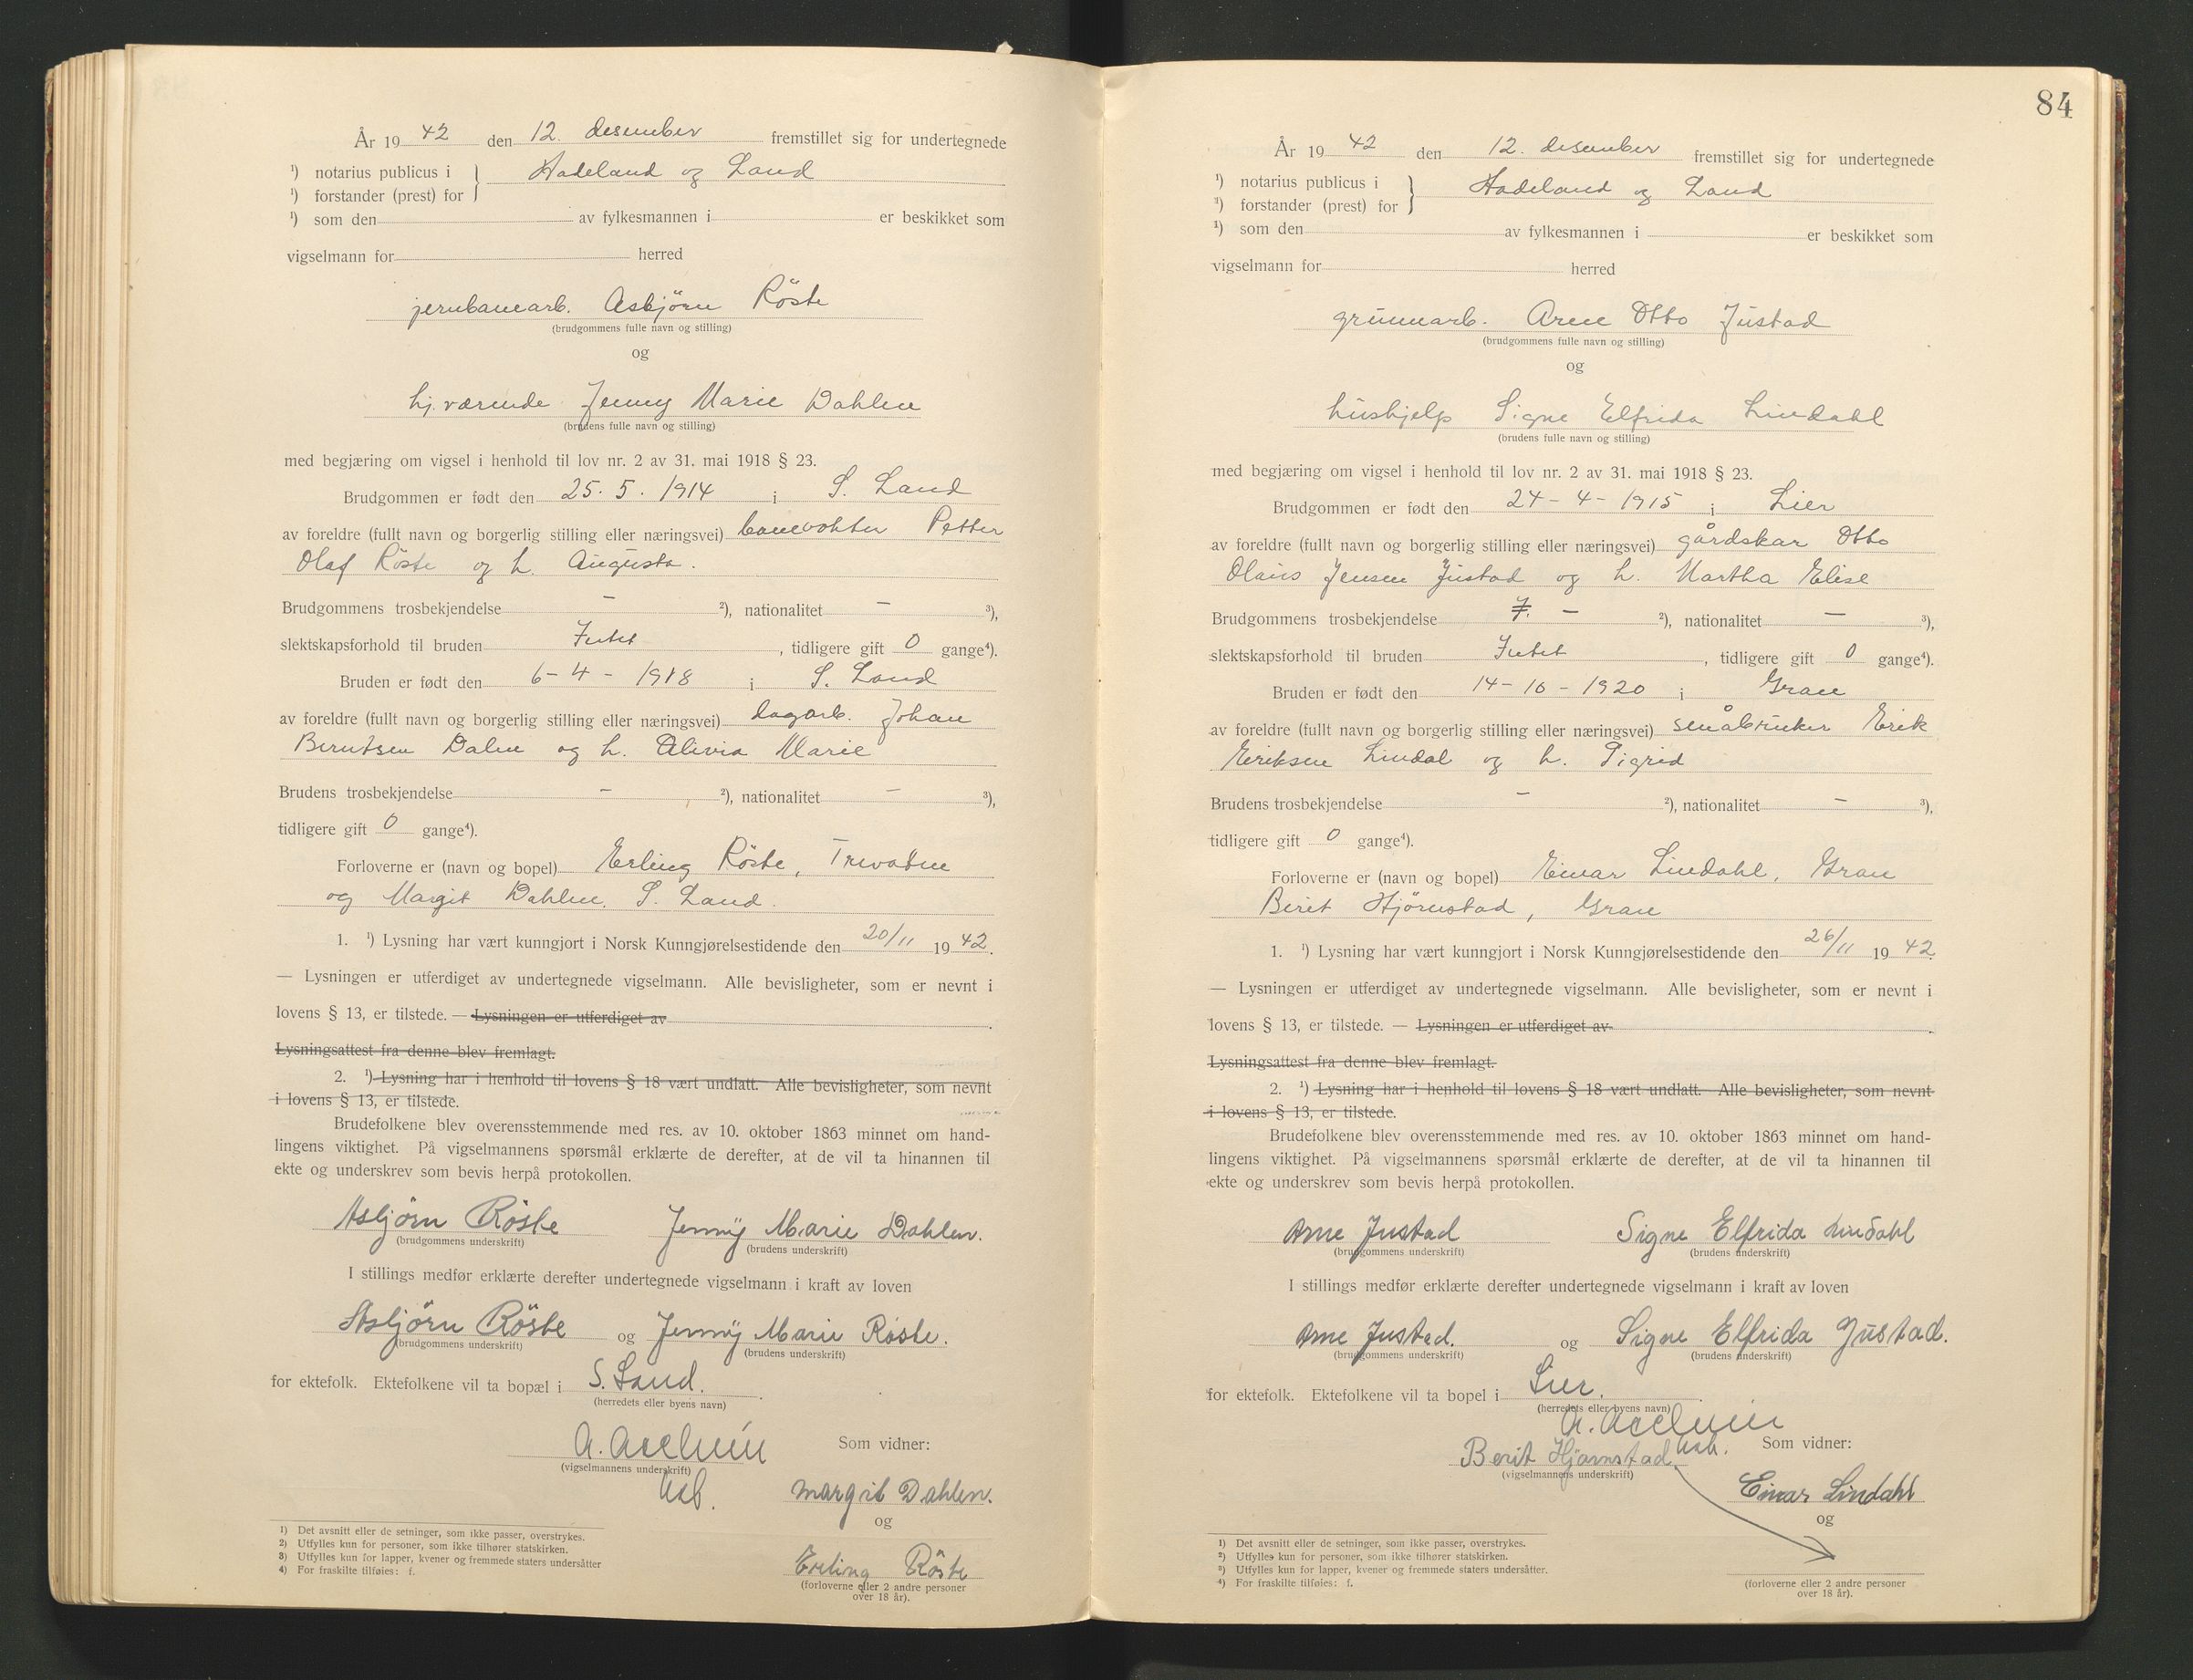 År 19 42 den 12. desember fremstillet sig for undertegnede
¹) notarius publicus i } Hadeland og Land
¹) forstander (prest) for
¹) som den av fylkesmannen i er beskikket som
vigselmann for herred
jernbanearb. Asbjörn Röste
(brudgommens fulle navn og stilling)
og
hj. værende Jenny Marie Dahlen
(brudens fulle navn og stilling)
med begjæring om vigsel i henhold til lov nr. 2 av 31. mai 1918 § 23.
Brudgommen er født den 25. 5. 1914 i S. Land
av foreldre (fullt navn og borgerlig stilling eller næringsvei) banevokter Petter
Olaf Röste og h. Augusta.
Brudgommens trosbekjendelse – ²), nationalitet – ³),
slektskapsforhold til bruden Intet, tidligere gift 0 gange⁴).
Bruden er født den 6 – 4 – 1918 i S. Land
av foreldre (fullt navn og borgerlig stilling eller næringsvei) dagarb. Johan
Berntsen Dalen og h. Olivia Marie
Brudens trosbekjendelse – ²), nationalitet – ³),
tidligere gift 0 gange⁴).
Forloverne er (navn og bopel) Erling Röste, Trevatn
og Margit Dahlen, S. Land.
1. ¹) Lysning har vært kunngjort i Norsk Kunngjørelsestidende den 20/11 19 42.
— Lysningen er utferdiget av undertegnede vigselmann. Alle bevisligheter, som er nevnt i
lovens § 13, er tilstede. — Lysningen er utferdiget av .
Lysningsattest fra denne blev fremlagt.
2. ¹) Lysning har i henhold til lovens § 18 vært undlatt. Alle bevisligheter, som nevnt
i lovens § 13, er tilstede.
Brudefolkene blev overensstemmende med res. av 10. oktober 1863 minnet om hand-
lingens viktighet. På vigselmannens spørsmål erklærte de derefter, at de vil ta hinannen til
ekte og underskrev som bevis herpå protokollen.
Asbjörn Röste Jenny Marie Dahlen.
(brudgommens underskrift) (brudens underskrift)
I stillings medfør erklærte derefter undertegnede vigselmann i kraft av loven
Asbjörn Röste og Jenny Marie Röste.
(brudgommens underskrift) (brudens underskrift)
for ektefolk. Ektefolkene vil ta bopæl i S. Land.
(herredets eller byens navn)
Som vidner:
(vigselmannens underskrift)
Margit Dahlen.
og
Erling Röste
(forloverne eller 2 andre personer
over 18 år).
¹) Det avsnitt eller de setninger, som ikke passer, overstrykes.
²) Utfylles kun for personer, som ikke tilhører statskirken.
³) Utfylles kun for lapper, kvener og fremmede staters undersåtter
⁴) For fraskilte tilføies: f.
84
År 19 42 den 12. desember fremstillet sig for undertegnede
¹) notarius publicus i } Hadeland og Land
¹) forstander (prest) for
¹) som den av fylkesmannen i er beskikket som
vigselmann for herred
grunnarb. Arne Otto Justad
(brudgommens fulle navn og stilling)
og
hushjelp Signe Elfrida Lindahl
(brudens fulle navn og stilling)
med begjæring om vigsel i henhold til lov nr. 2 av 31. mai 1918 § 23.
Brudgommen er født den 24 – 4 – 1915 i Lier
av foreldre (fullt navn og borgerlig stilling eller næringsvei) gårdskar Otto
Olaus Jensen Justad og h. Martha Elise
Brudgommens trosbekjendelse – ²), nationalitet – ³),
slektskapsforhold til bruden Intet, tidligere gift 0 gange⁴).
Bruden er født den 14 – 10 – 1920 i Gran
av foreldre (fullt navn og borgerlig stilling eller næringsvei) småbruker Erik
Eriksen Lindal og h. Sigrid
Brudens trosbekjendelse – ²), nationalitet – ³),
tidligere gift 0 gange⁴).
Forloverne er (navn og bopel) Einar Lindahl, Gran
Berit Hjørnstad, Gran
1. ¹) Lysning har vært kunngjort i Norsk Kunngjørelsestidende den 26/11 19 42.
— Lysningen er utferdiget av undertegnede vigselmann. Alle bevisligheter, som er nevnt i
lovens § 13, er tilstede. — Lysningen er utferdiget av .
Lysningsattest fra denne blev fremlagt.
2. ¹) Lysning har i henhold til lovens § 18 vært undlatt. Alle bevisligheter, som nevnt
i lovens § 13, er tilstede.
Brudefolkene blev overensstemmende med res. av 10. oktober 1863 minnet om hand-
lingens viktighet. På vigselmannens spørsmål erklærte de derefter, at de vil ta hinannen til
ekte og underskrev som bevis herpå protokollen.
Arne Justad Signe Elfrida Lindahl
(brudgommens underskrift) (brudens underskrift)
I stillings medfør erklærte derefter undertegnede vigselmann i kraft av loven
Arne Justad. og Signe Elfrida Justad.
(brudgommens underskrift) (brudens underskrift)
for ektefolk. Ektefolkene vil ta bopel i Lier.
(herredets eller byens navn)
Som vidner:
Berit Hjørnstad
(vigselmannens underskrift)
Einar Lindahl
og
(forloverne eller 2 andre personer
over 18 år).
¹) Det avsnitt eller de setninger, som ikke passer, overstrykes.
²) Utfylles kun for personer, som ikke tilhører statskirken.
³) Utfylles kun for lapper, kvener og fremmede staters undersåtter.
⁴) For fraskilte tilføies: f.